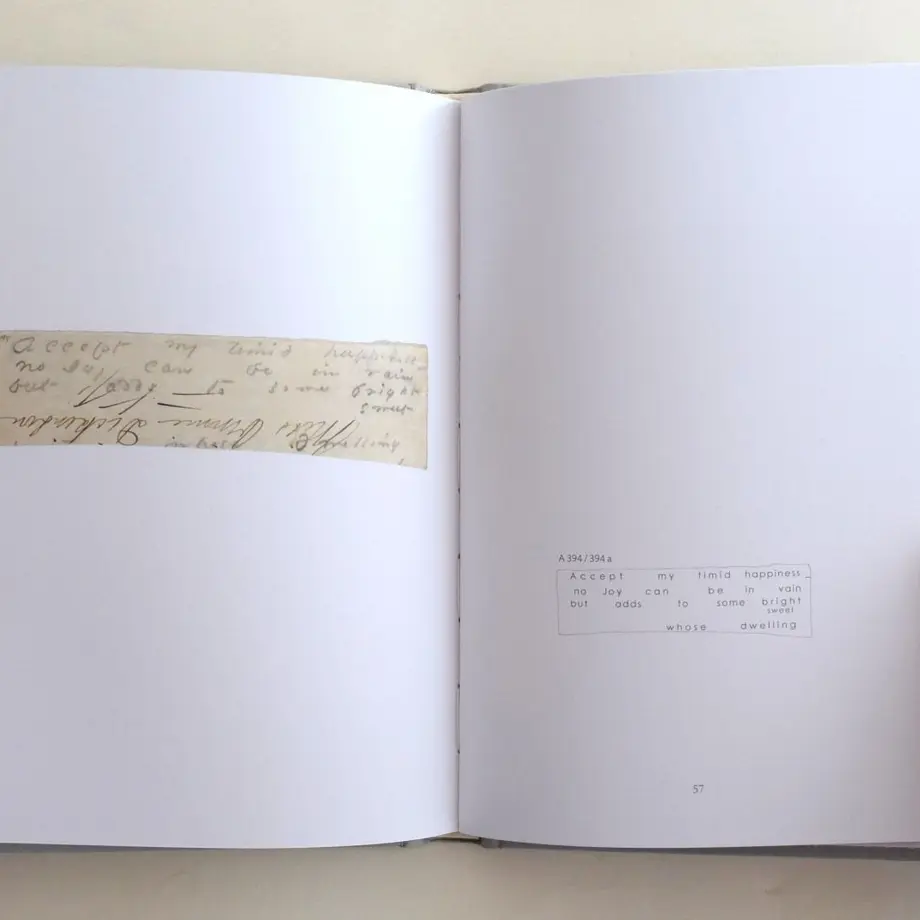 "Accept my timid happiness
no Joy can be in vain
but adds to some bright
sweet
Miss Dickinson
dwelling
A 394/394 a
Accept my timid happiness
no Joy can be in vain
but adds to some bright
sweet
whose dwelling
57